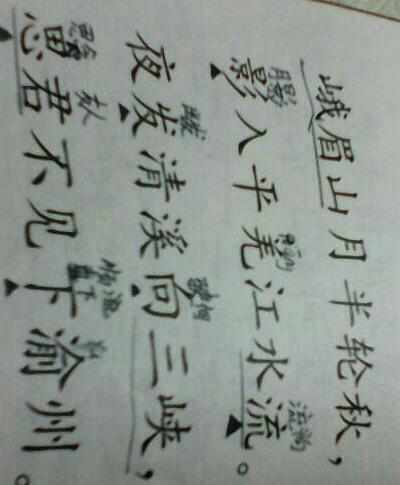 峨眉山月半轮秋，
影入平羌江水流。
流淌
夜发清溪向三峡，
思君不见下渝州。
友人